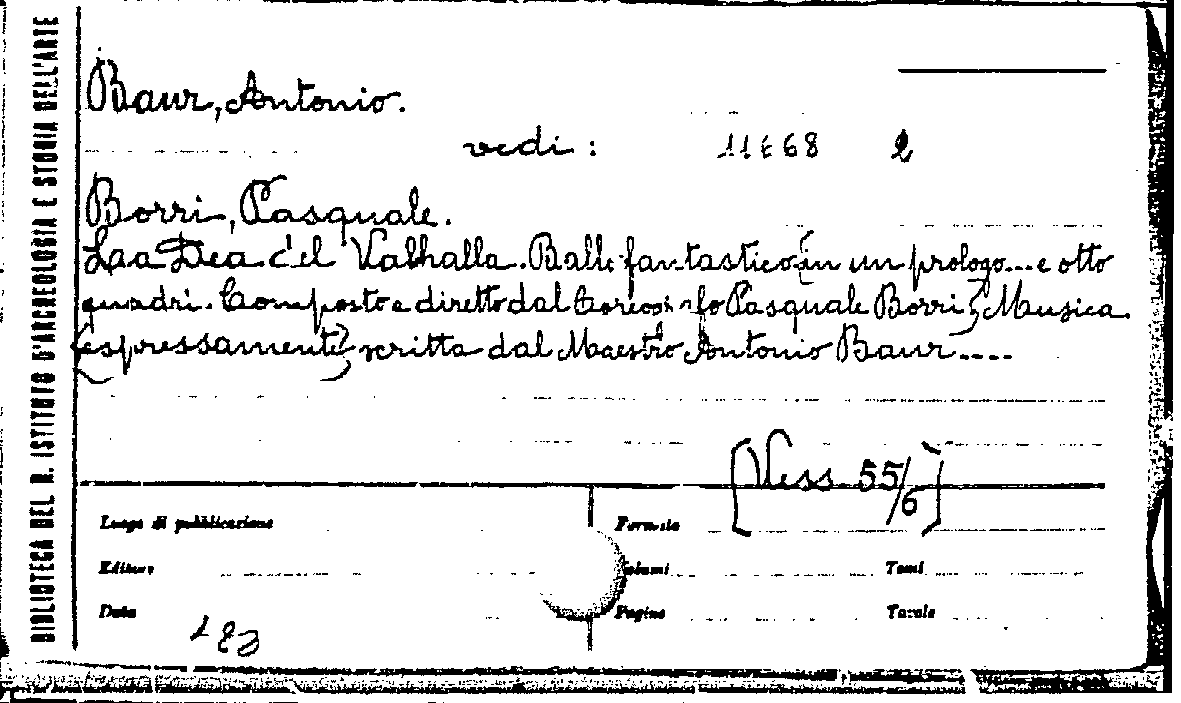 BIBLIOTECA DEL R. ISTITUTO D'ARCHEOLOGIA E STORIA DELL'ARTE
Baur, Antonio.
vedi : 11668 2
Borri, Pasquale.
Laa Dea del Valhalla. Ballo fantastico in un prologo... e otto
quadri. Composto e diretto dal Coreografo Pasquale Borri; Musica
(espressamente) scritta dal Maestro Antonio Baur....
[Vess 55/6]
Luogo di pubblicazione Formato
Editore Volumi Tomi
Data Pagine Tavole